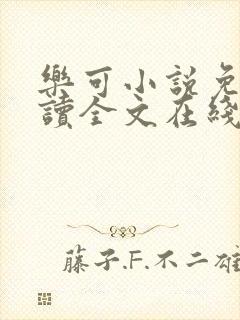 樂可小說免
讀全文在綫
藤子.F.不二雄